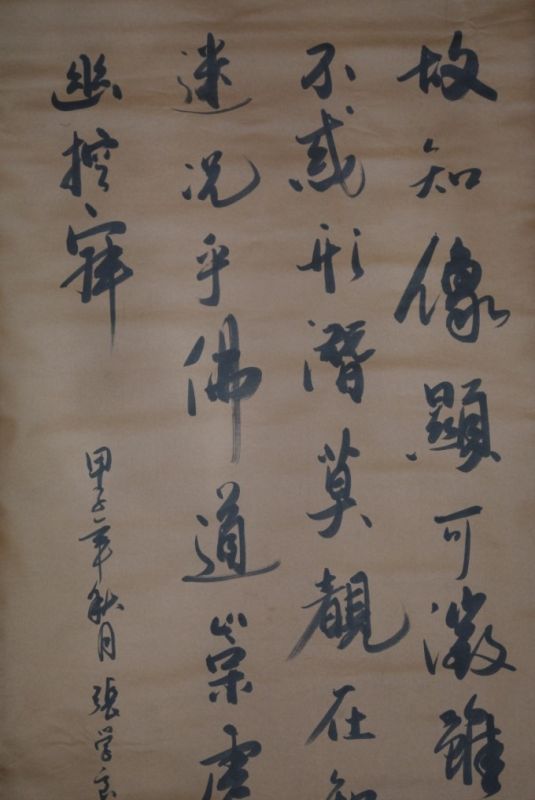 故知像顯可澂雖
不惑形潛莫覩在智
迷況乎佛道崇虚
幽控寂
甲子年秋月 張学良